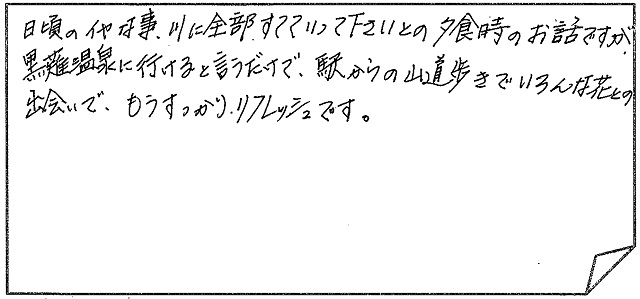 日頃のイヤな事、川に全部すてていって下さいとの夕食時のお話ですが、
黒薙温泉に行けると言うだけで、駅からの山道歩きでいろんな花との
出会いで、もうすっかりリフレッシュです。